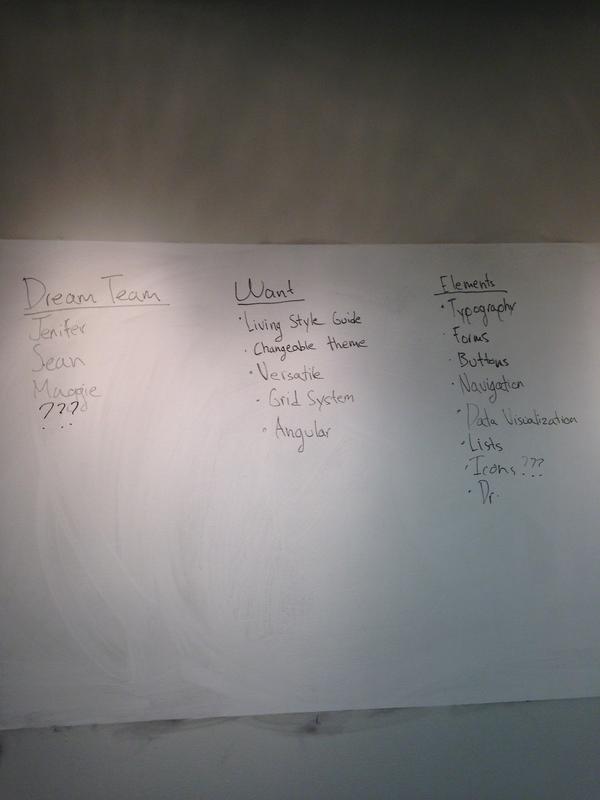 Dream Team
Jenifer
Sean
Maggie
???
Want
· Living Style Guide
· Changeable theme
· Versatile
· Grid System
· Angular
Elements
· Typography
· Forms
· Buttons
· Navigation
· Data Visualization
· Lists
· Icons ???
· Dr.